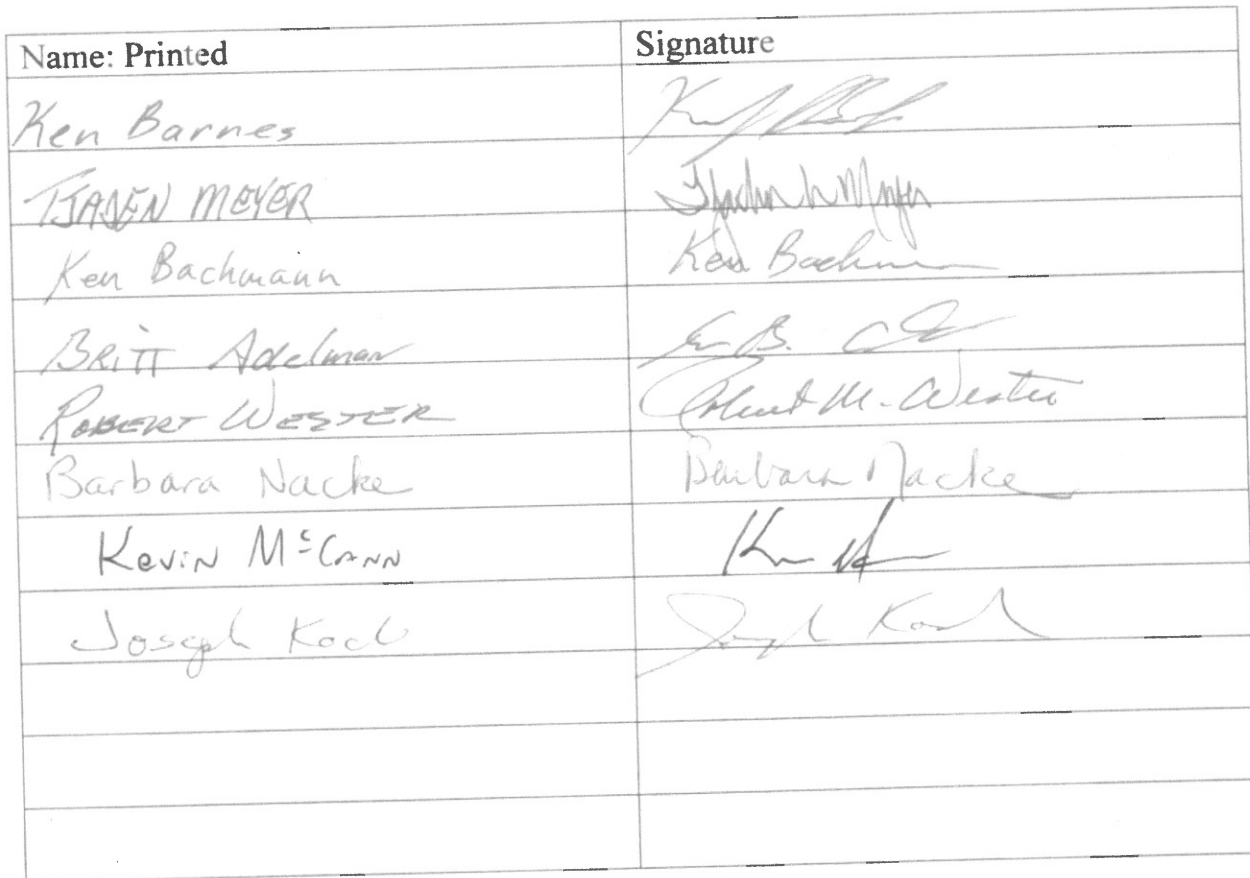 Name: Printed Signature
Ken Barnes
TJADEN MEYER
Ken Bachmann Ken Bachm
BRITT Adelman B.
ROBERT WESTER Robert M. Wester
Barbara Nacke Barbara Nacke
Kevin McCann
Joseph Koch Joseph Koch